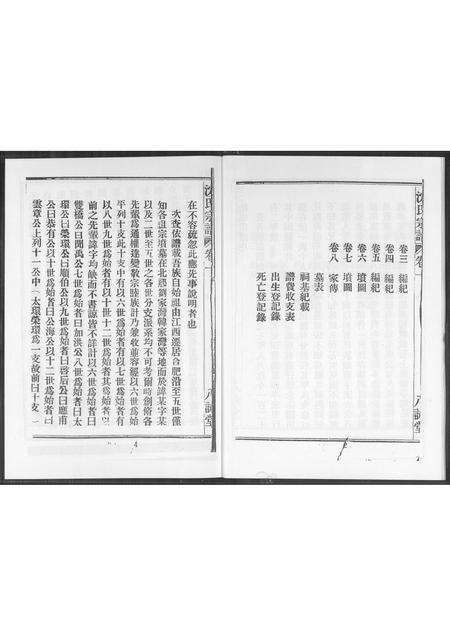 沈氏宗譜 卷一
卷三 編紀
卷四 編紀
卷五 編紀
卷六 墳圖
卷七 墳圖
卷八 家傳
墓表
祠基紀載
譜費收支表
出生登記錄
死亡登記錄
八詠堂
沈氏宗譜 卷一
在不容疏忽此應先事說明者也
次查依譜載吾族自始祖由江西遷居合肥沿至五世僅
知各祖宗墳墓在北鄉劉家灣韓家灣等地而於諱某字某
以及二世至五世之各世分支派系均不可考爾時創修各
先輩為通權達變敦宗睦族計乃兼收並容經以六世為始
平列十支此十支中有以六世為始者有以七世為始者有
以八世九世為始者有以十世十二世為始者其為始者
前之先輩諱字均缺而不書諒皆不詳計以六世為始者曰
雙橋公曰閒禹公七世為始者曰加洪公八世為始者曰太
環公曰榮環公曰順伯公以九世為始者曰啓后公曰應甫
公曰恭有公以十世為始者曰公海公以十二世為始者曰
雲章公上列十一公中 太環榮環為一支故前曰十支
八詠堂